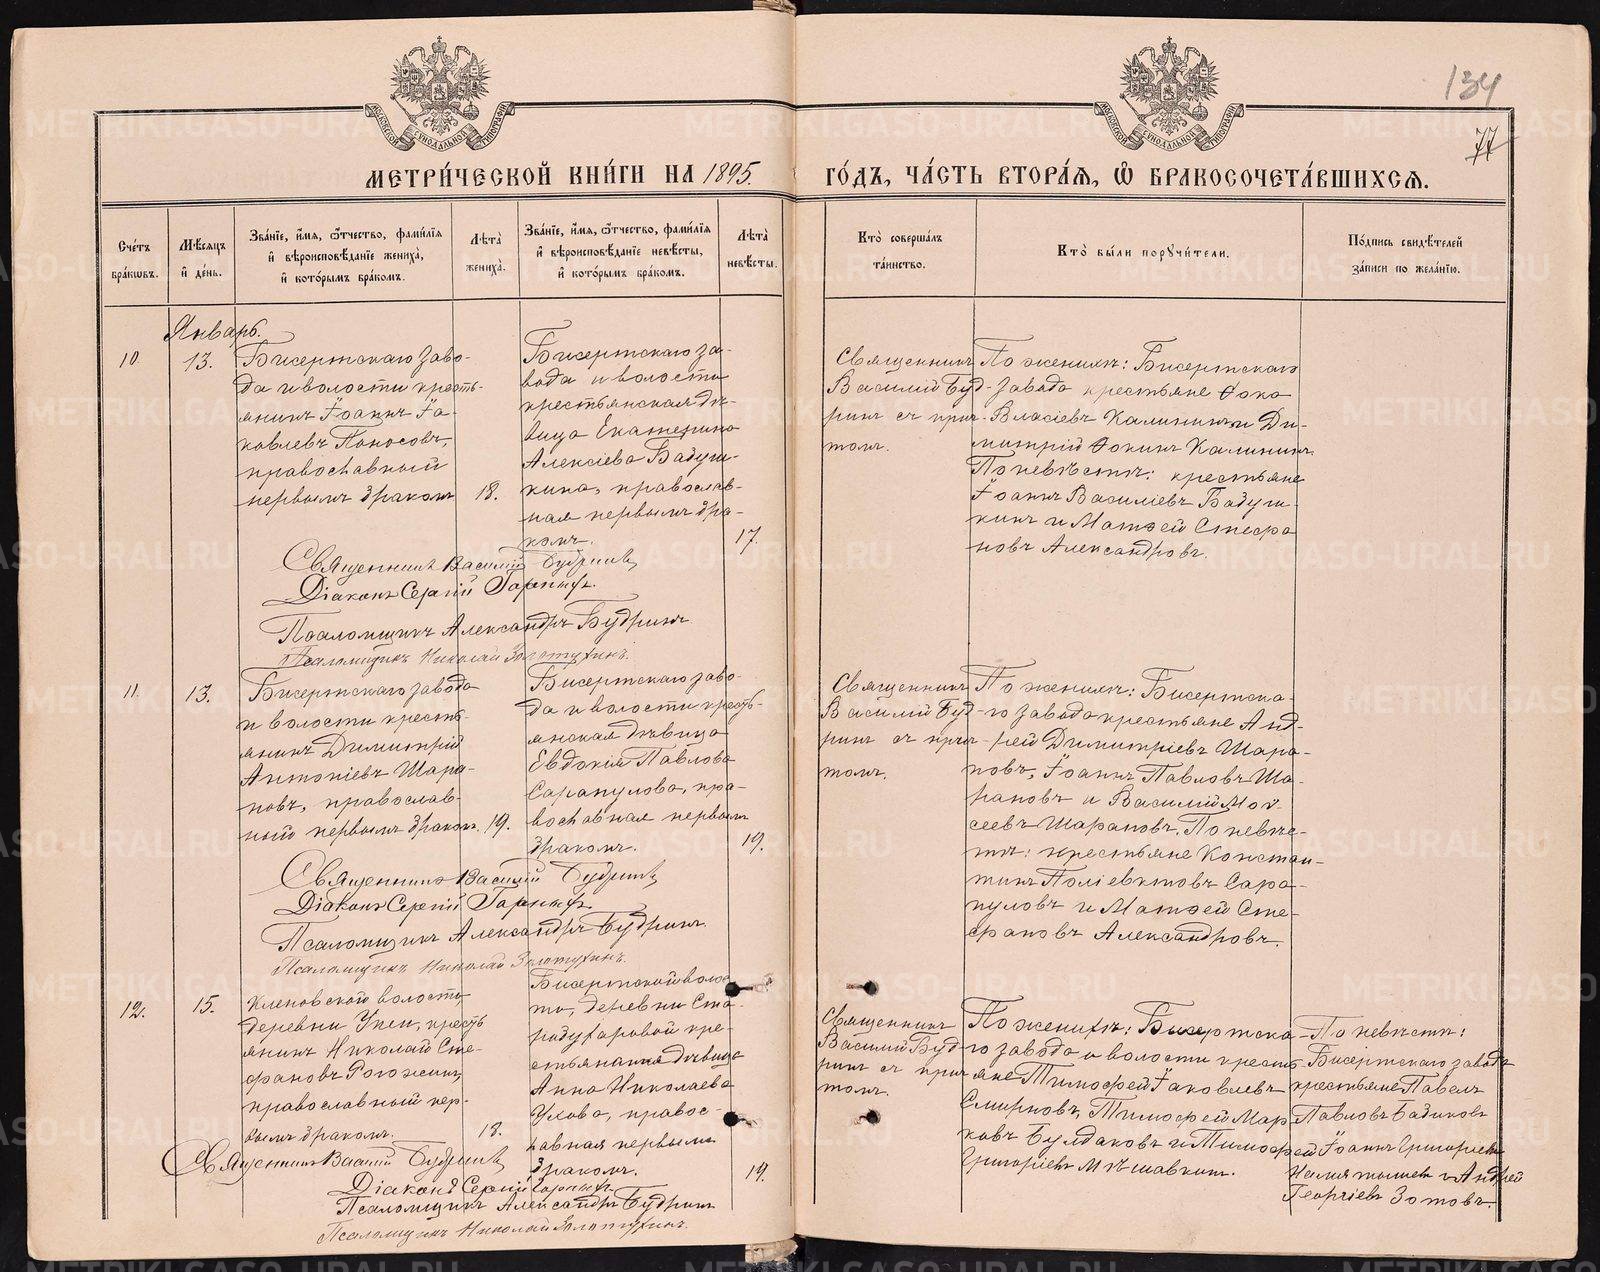 134
77
МЕТРИ́ЧЕСКОЙ КНИ́ГИ НА 1895. ГО́ДЪ, ЧА́СТЬ ВТОРА́Я, Ѽ БРАКОСОЧЕТА́ВШИХСЯ.
Сче́тъ бра́кѡвъ.
Мѣ́сяцъ и҆ де́нь.
Зва́нїе, и҆́мя, ѻ҆́тчество, фами́лїя и҆ вѣроисповѣ́данїе жениха̀, и҆ кото́рымъ бра́комъ.
Лѣ́та жениха̀.
Зва́нїе, и҆́мя, ѻ҆́тчество, фами́лїя и҆ вѣроисповѣ́данїе невѣ́сты, и҆ кото́рымъ бра́комъ.
Лѣ́та невѣ́сты.
Кто̀ соверша́лъ та́инство.
Кто̀ бы́ли порꙋчи́тели.
По́дпись свидѣ́телей за́писи по жела́нїю.
Январь.
10
13.
Бисертскаго заво-
да и волости кресть-
янинъ Іоаннъ Іа-
ковлевъ Поносовъ,
православный
первымъ бракомъ
18.
Бисертскаго за-
вода и волости
крестьянская дѣ-
вица Екатерина
Алексіева Бадуш-
кина, православ-
ная первымъ бра-
комъ.
17.
Священникъ
Василій Буд-
ринъ съ прич-
томъ.
По женихѣ: Бисертскаго
завода крестьяне Фока
Власіевъ Калининъ и Ди-
митрій Фокинъ Калининъ
По невѣстѣ: крестьяне
Іоаннъ Василіевъ Бадуш-
кинъ и Матѳей Стефа
новъ Александровъ.
Священникъ Василій Будринъ
Діаконъ Сергій
Псаломщикъ Александръ Будринъ
Псаломщикъ Николай Золотухинъ.
11.
13.
Бисертскаго завода
и волости кресть-
янинъ Димитрій
Антоніевъ Шара-
повъ, православ-
ный первымъ бракомъ.
19.
Бисертскаго заво-
да и волости кресть-
янская дѣвица
Евдокія Павлова
Сарапулова, пра-
вославная первым
бракомъ.
19.
Священникъ
Василій Буд-
ринъ съ прич-
томъ.
По женихѣ: Бисертска-
го завода крестьяне Анд-
рей Димитріевъ Шара-
повъ, Іоаннъ Павловъ Ша-
раповъ и Василій Мои-
сеевъ Шараповъ. По невѣс-
тѣ: крестьяне Констан-
тинъ Поліевктовъ Сара-
пуловъ и Матѳей Сте-
фановъ Александровъ.
Священникъ Василій Будринъ
Діаконъ Сергій
Псаломщикъ Александръ Будринъ.
Псаломщикъ Николай Золотухинъ.
12.
15.
Кленовской волости,
деревни Упеи, кресть
янинъ Николай Сте-
фановъ Рогожинъ,
православный пер-
вымъ бракомъ.
18.
Бисертской волос-
ти, деревни Ста-
робухаровой кре-
стьянская дѣвица
Анна Николаева
Ухова, правос-
лавная первымъ
бракомъ.
19.
Священникъ
Василій Буд-
ринъ съ прич
томъ.
По женихѣ: Бисертска-
го завода и волости кресть
яне Тимофей Іаковлевъ
Смирновъ, Тимофей Мар
ковъ Булдаковъ и Тимофей
Григоріевъ
По невѣстѣ:
Бисертскаго завода
крестьяне Павелъ
Павловъ Бадиковъ
Іоаннъ Григоріевъ
и Андрей
Георгіевъ Зотовъ.
Священникъ Василій Будринъ
Діаконъ Сергій
Псаломщикъ Александръ Будринъ
Псаломщикъ Николай Золотухинъ.
METRIKI.GASO-URAL.RU